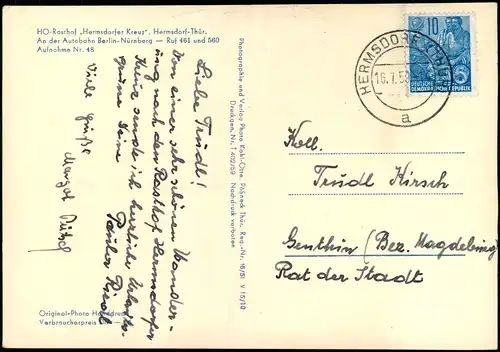 HO-Rasthof „Hermsdorfer Kreuz", Hermsdorf-Thür.
An der Autobahn Berlin-Nürnberg — Ruf 461 und 560
Aufnahme Nr. 48
Liebe Trudl!
Von einer sehr schönen Wander-
ung nach dem Rasthof Hermsdorfer
Kreuz sende ich herzliche Urlaubs-
grüße Deine
Paula Riedl
Viele Grüße
Margot
Original-Photo Handdruck
Verbraucherpreis
Photographie und Verlag Photo König-One, Pößneck Thür. Reg.-Nr. 16/51 V 15/10
Druckgen. Nr. T 402/59 Nachdruck verboten
HERMSDORF (THÜR)
16.7.5
a
10
DEUTSCHE
DEMOKRATISCHE REPUBLIK
Koll.
Trudl Hirsch
Genthin (Bez. Magdeburg)
Rat der Stadt